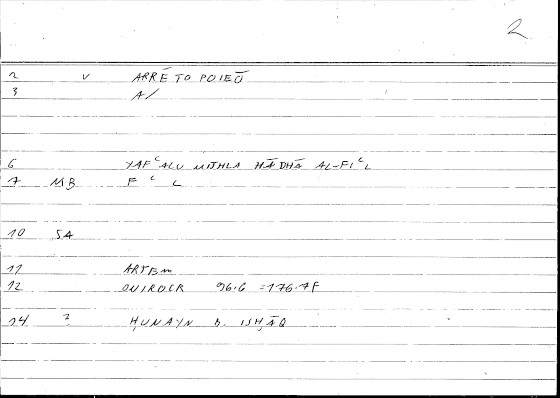 2
2 v ARRĒTOPOIEŌ
3 A/
6 YAFʿALU MITHLA HĀDHĀ AL-FIʿL
7 MB F ʿ L
10 SA
11 ARTEM
12 ONIROCR 96.6 =176.7F
14 2 ḤUNAYN b. ISḤĀQ